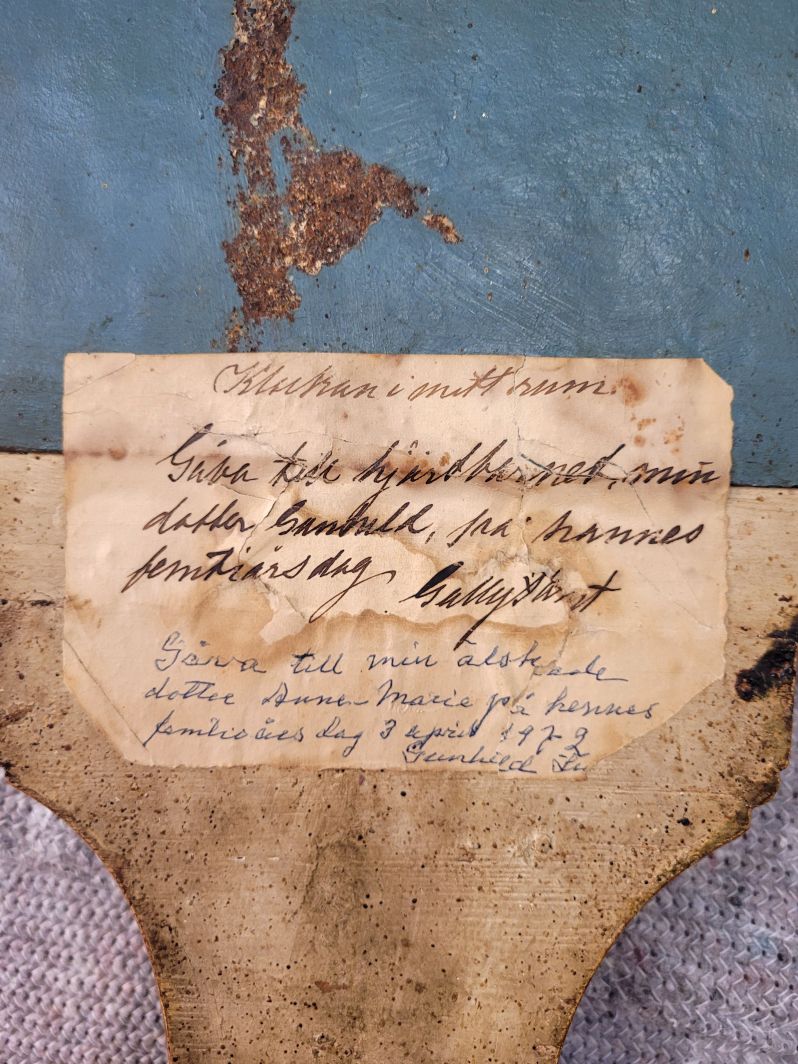 Klockan i mitt rum.
Gåva till hjärtbarned, min
dotter Gunhild, på hannes
femtiårsdag
Gåva till min älskade
dotter Anne-Marie på hennes
femtioårs dag 3 april 1979
Gunhild